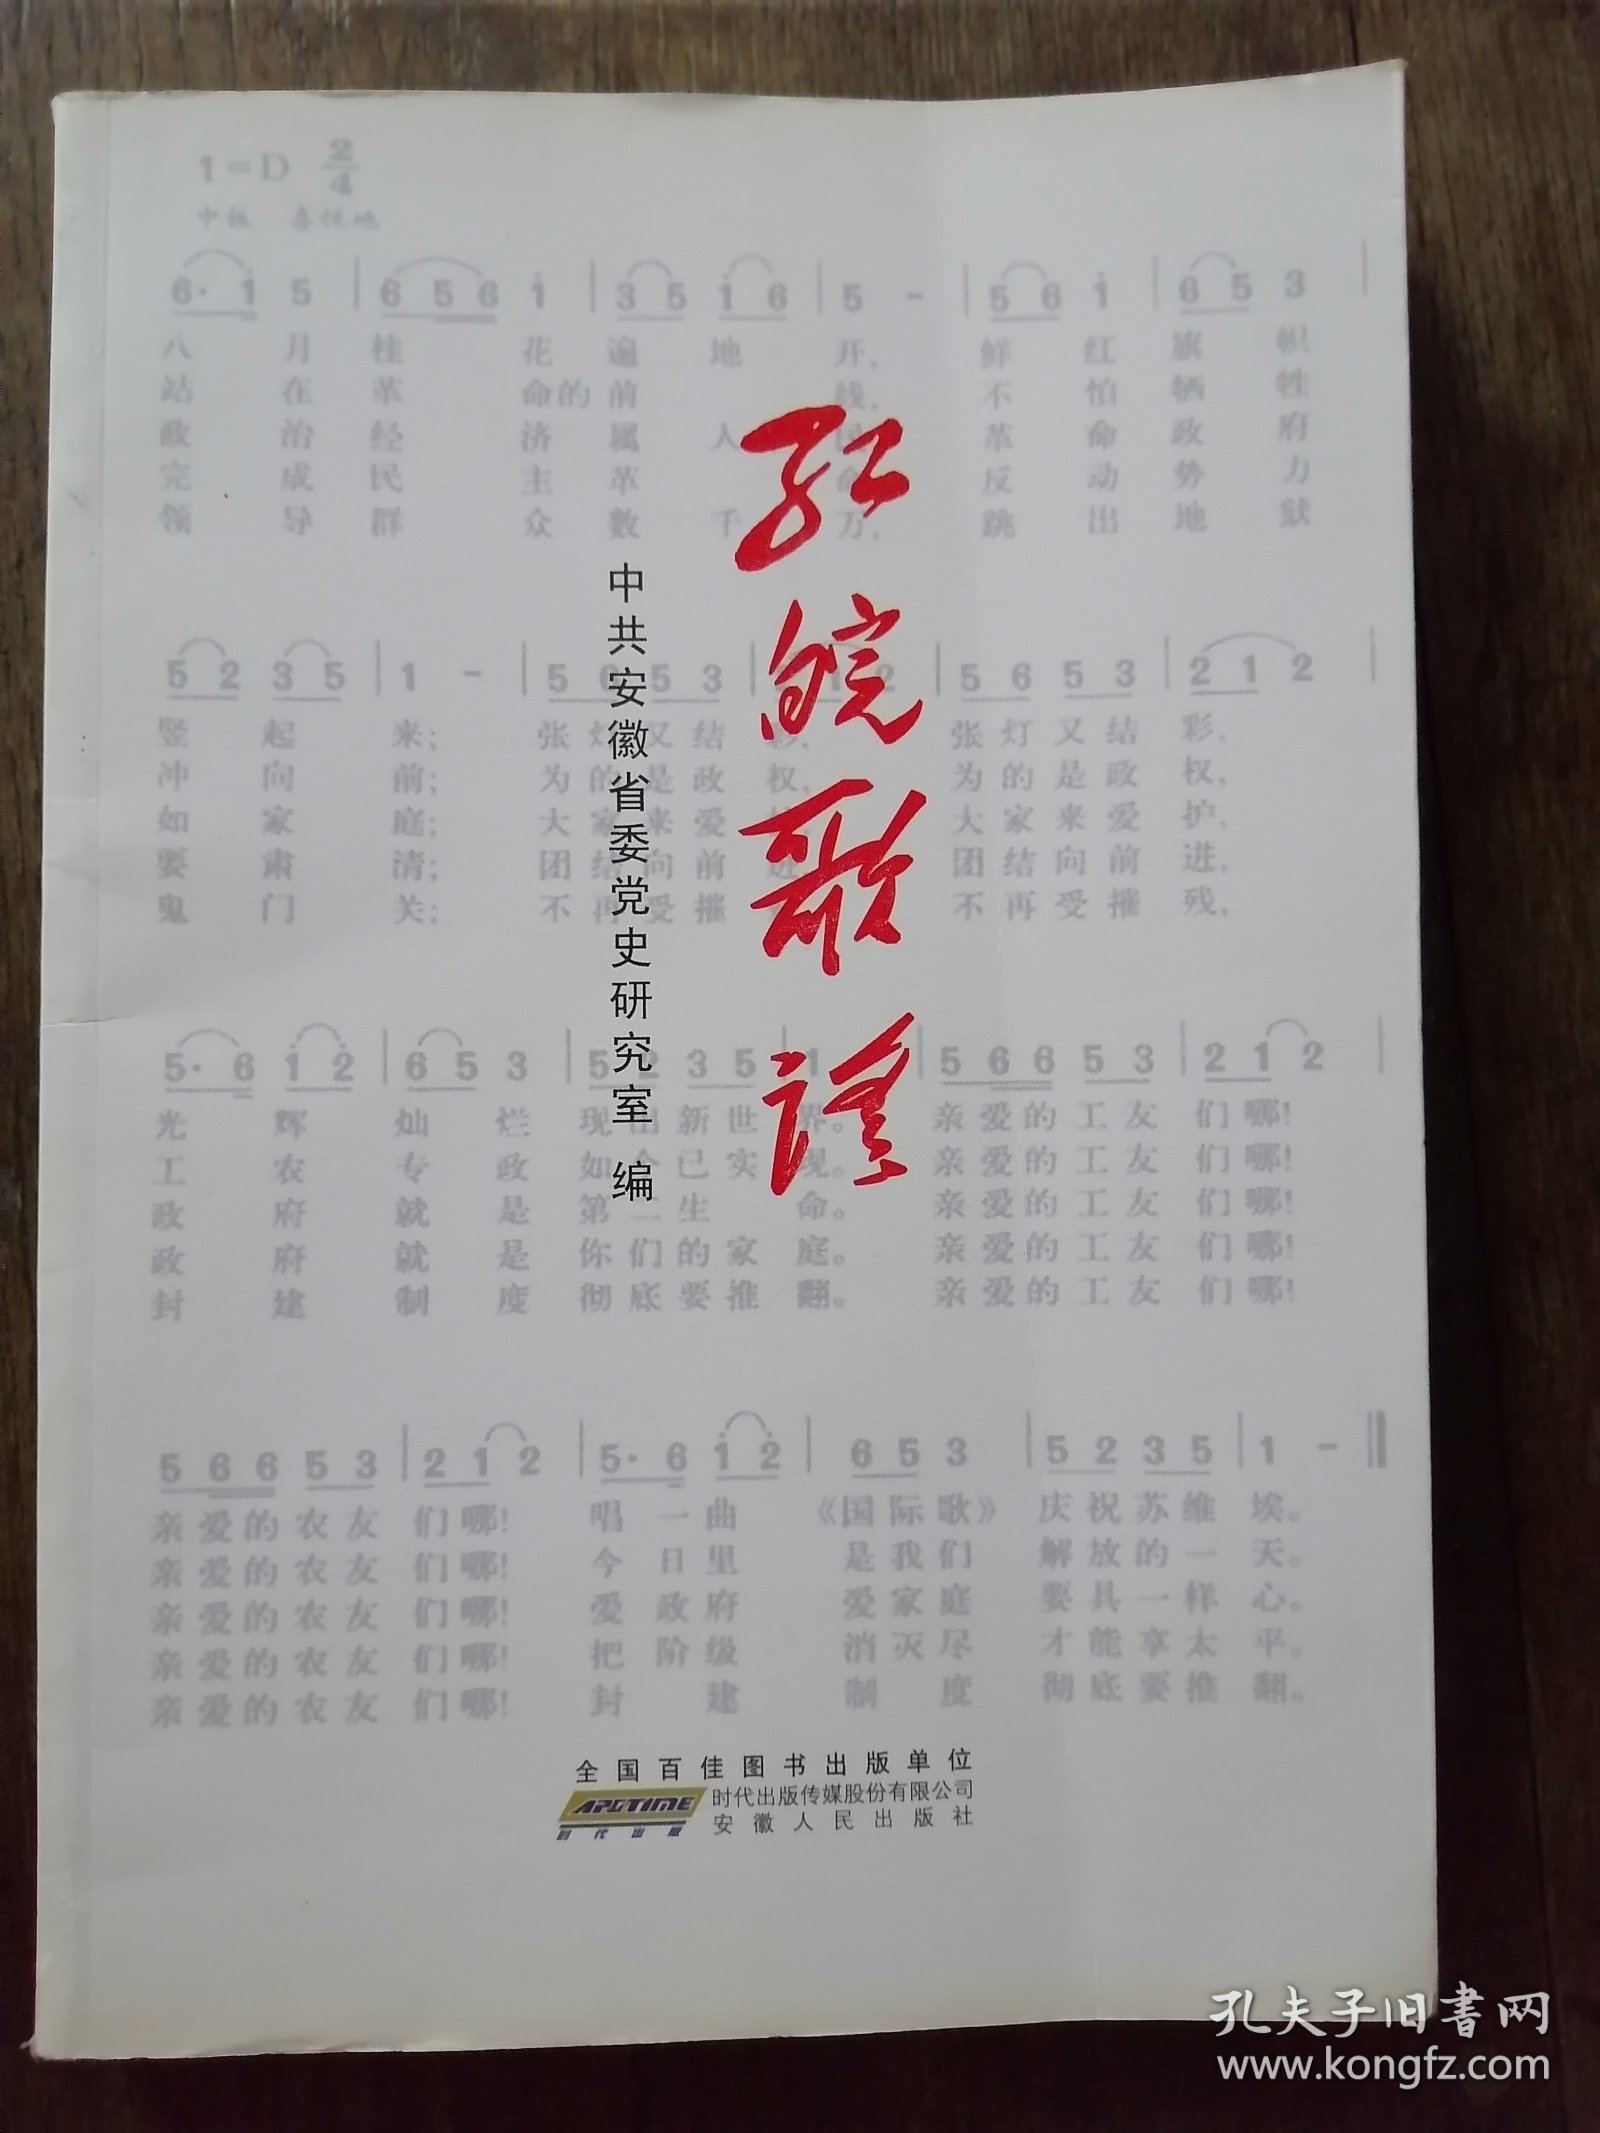 1=D 2/4
中板 喜悦地
6· 1 5 | 6 5 6 1 | 3 5 1 6 | 5 - | 5 6 1 | 6 5 3 |
八月桂花遍地开，鲜红旗帜
站在革命的前线，不怕牺牲
政治经济属人 革命政府
完成民主革命 反动势力
领导群众数千万，跳出地狱
5 2 3 5 | 1 - | 5 6 5 3 | 2 1 2 | 5 6 5 3 | 2 1 2 |
竖起来；张灯又结彩，张灯又结彩，
冲向前；为的是政权，为的是政权，
如家庭；大家来爱护，大家来爱护，
要肃清；团结向前进，团结向前进，
鬼门关；不再受摧 不再受摧残，
5· 6 1 2 | 6 5 3 | 5 2 3 5 | 1 | 5 6 6 5 3 | 2 1 2 |
光辉灿烂现出新世界。亲爱的工友们哪！
工农专政如今已实现。亲爱的工友们哪！
政府就是第二生命。亲爱的工友们哪！
政府就是你们的家庭。亲爱的工友们哪！
封建制度彻底要推翻。亲爱的工友们哪！
5 6 6 5 3 | 2 1 2 | 5· 6 1 2 | 6 5 3 | 5 2 3 5 | 1 -
亲爱的农友们哪！唱一曲《国际歌》庆祝苏维埃。
亲爱的农友们哪！今日里是我们解放的一天。
亲爱的农友们哪！爱政府爱家庭要具一样心。
亲爱的农友们哪！把阶级消灭尽才能享太平。
亲爱的农友们哪！封建制度彻底要推翻。
红皖歌谣
中共安徽省委党史研究室 编
全国百佳图书出版单位
APGTIME
时代出版
时代出版传媒股份有限公司
安徽人民出版社
孔夫子旧书网
www.kongfz.com